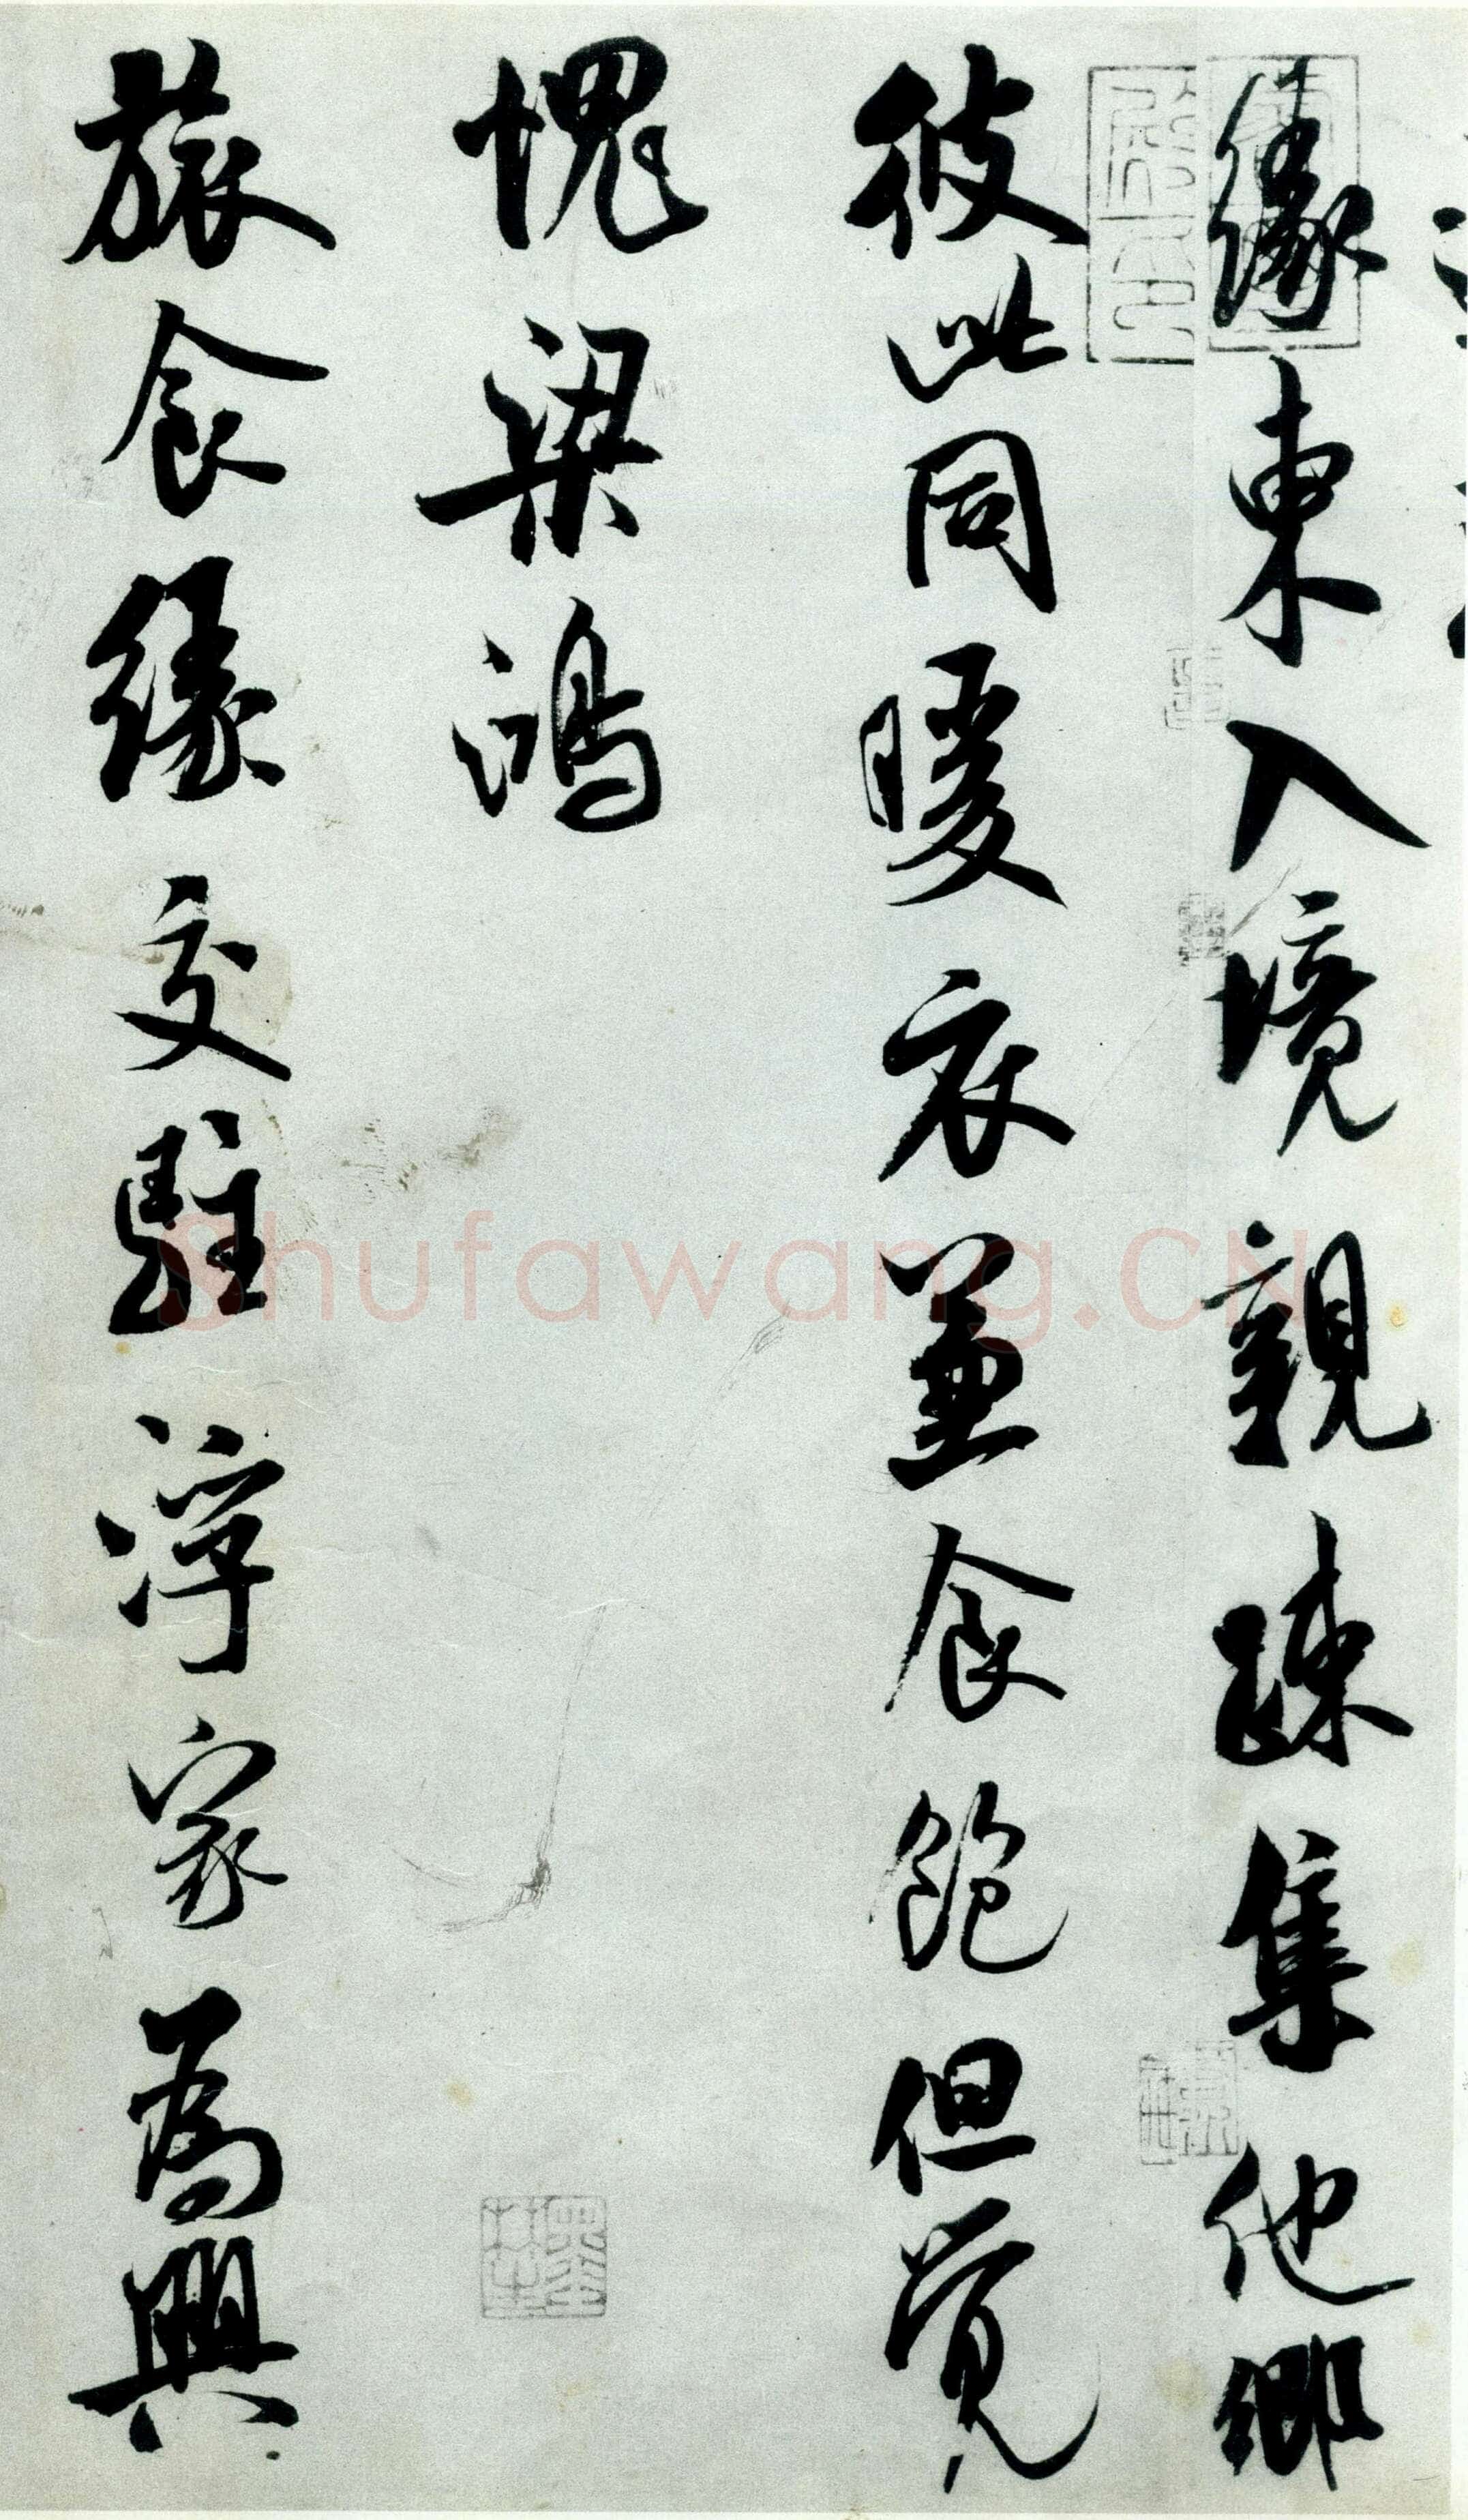 緣東入境親踈集他鄉
彼此同暖衣兼食飽但覺
愧梁鴻
旅食緣交駐浮家為興
Shufawang.CN